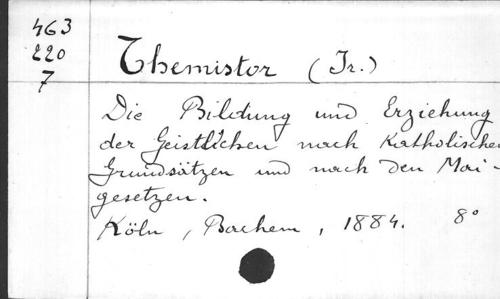 463
220
7
Themistor (Ir.)
Die Bildung und Erziehung
der Geistlichen nach Katholischen
Grundsätzen und nach den Mai-
gesetzen.
Köln, Bachem, 1884. 8°